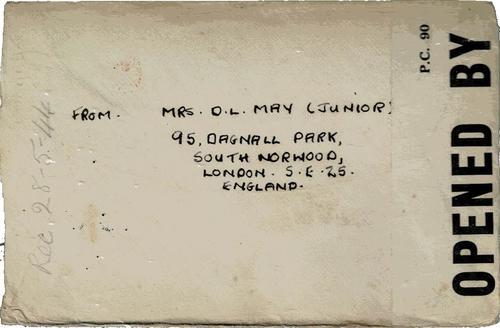 FROM. MRS. D.L. MAY (JUNIOR)
95, DAGNALL PARK,
SOUTH NORWOOD,
LONDON. S.E.25.
ENGLAND.
Rec 28-5-44
P.C. 90
OPENED BY